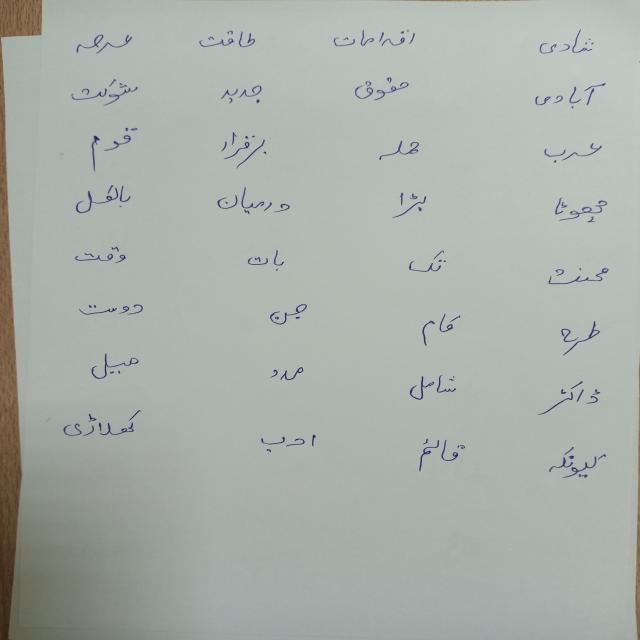 شادی اقدامات طاقت عرصہ
آبادی حقوق جدید شوکت
عرب حملہ برقرار قوم
چھوٹا بڑا درمیان بالکل
محنت تک بات وقت
طرح کام جن دوست
ڈاکٹر شامل مدد
کیونکہ قائم ادب کھلاڑی